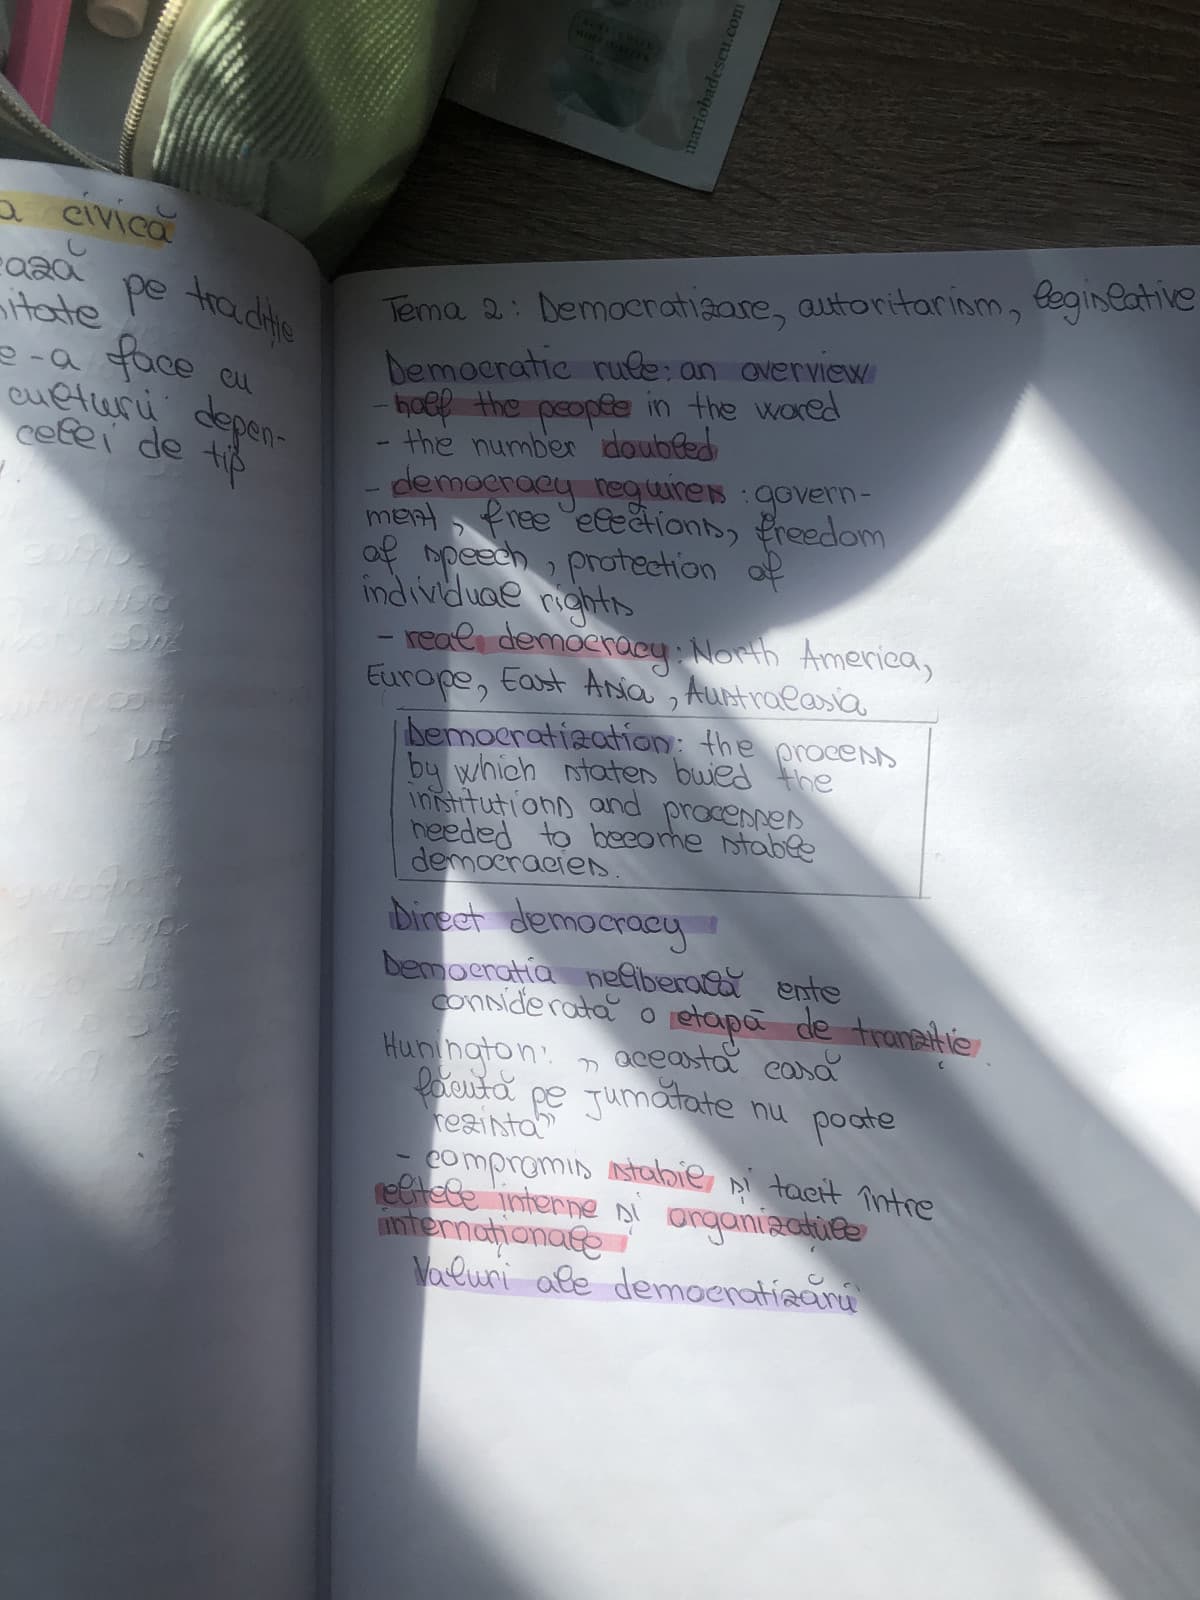 mariobadescu.com
a civică
ează pe tradiție
itate
e-a face cu
culturii depen-
celei de tip
Tema 2: Democratizare, autoritarism, legislative
Democratic rule: an overview
- half the people in the world
- the number doubled
- democracy requires : govern-
ment, free elections, freedom
of speech, protection of
individual rights
- real democracy: North America,
Europe, East Asia, Australasia
Democratization: the process
by which states build the
institutions and processes
needed to become stable
democracies.
Direct democracy
Democratia neliberală este
considerată o etapă de tranziție.
Hunington: „această casă
făcută pe jumătate nu poate
rezista”
- compromis stabil și tacit între
elitele interne și organizațiile
internaționale
Valuri ale democratizării